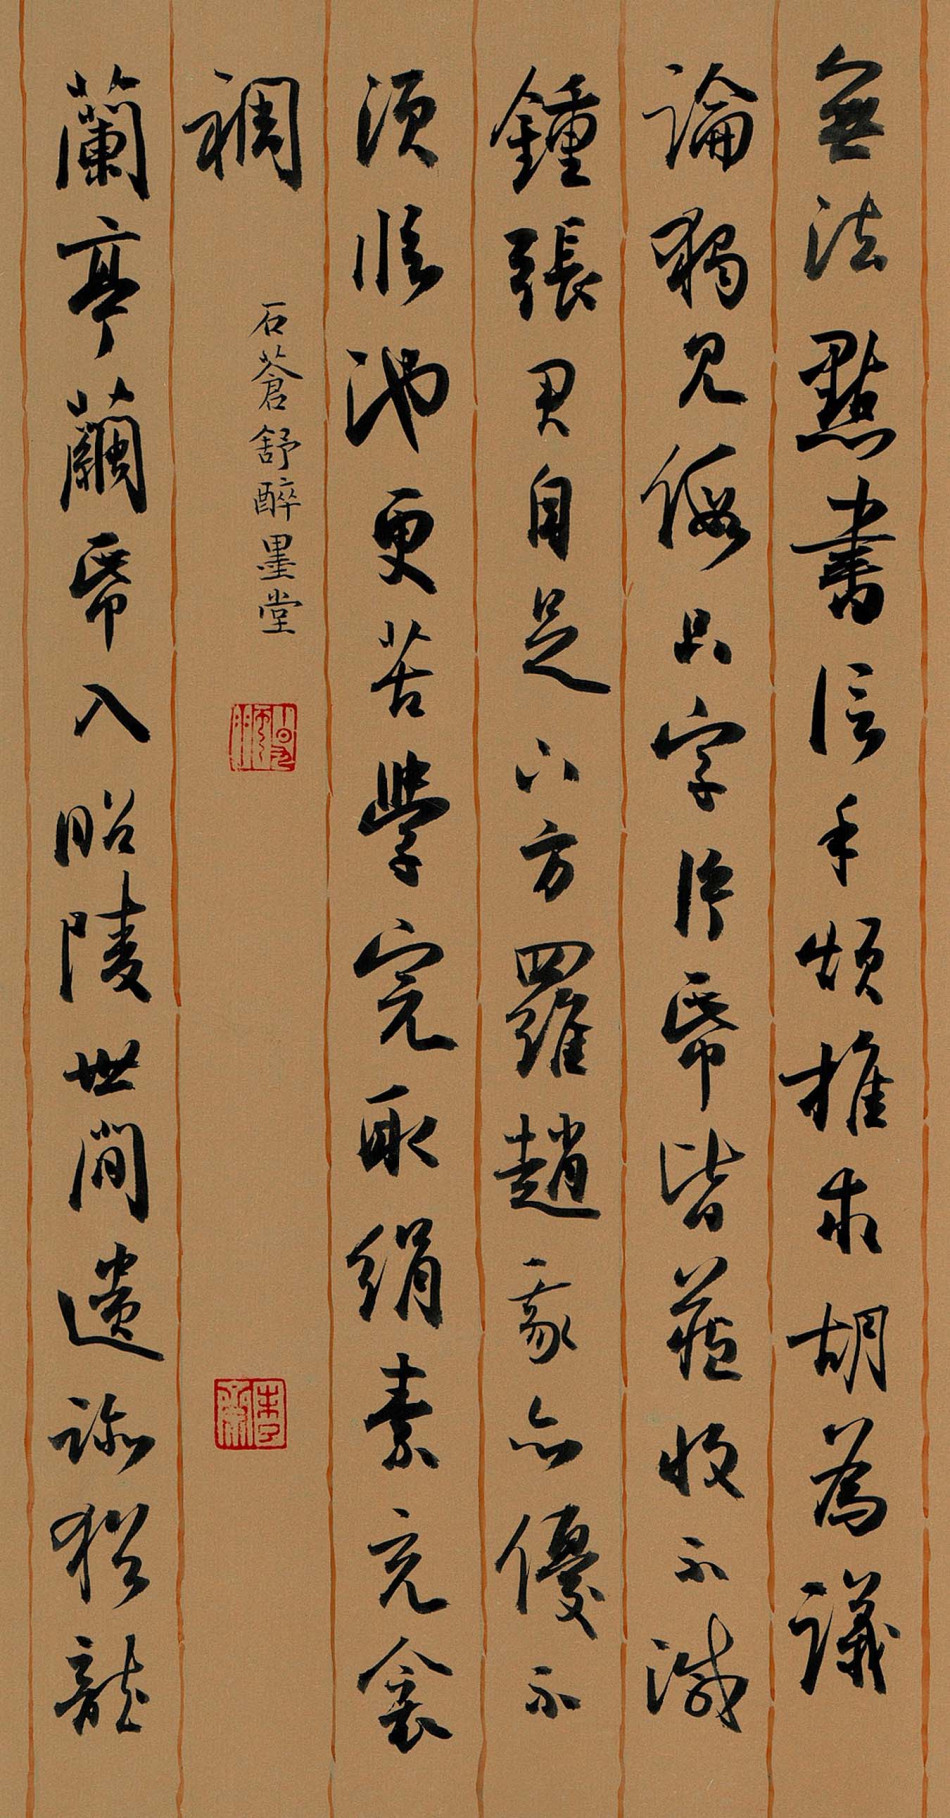 無法點畫信手煩推求胡為議
論獨見假隻字片紙皆藏收不減
鍾張君自足下方羅趙我亦優不
須臨池更苦學完取絹素充衾
裯
石蒼舒醉墨堂
蘭亭繭紙入昭陵世間遺跡猶龍